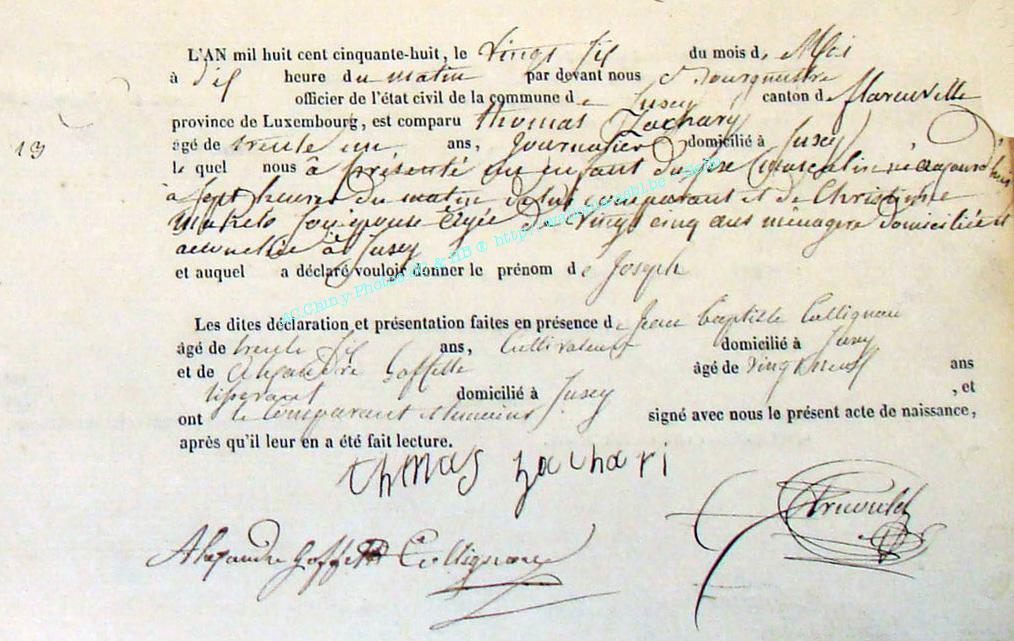 L'AN mil huit cent cinquante-huit, le vingt six du mois de Mai
à dix heure du matin par devant nous Bourgmestre
officier de l'état civil de la commune de Juseq canton de
province de Luxembourg, est comparu thomas Zachary
13 âgé de trente un ans, Journalier domicilié à Jusey
le quel nous à présenté un enfant du sexe masculin né aujourd'hui
à sept heures du matin de lui comparant et de Christinne
son épouse âgée de vingt cinq ans menagere domiciliée et
à Jusey
et auquel a déclaré vouloir donner le prénom de Joseph
Les dites déclaration et présentation faites en présence de Jean Baptiste Collignon
âgé de trente six ans, Cultivateur domicilié à Jusey
et de Alexandre Goffette âgé de vingt neuf ans
domicilié à Jusey , et
ont le comparant et temoins signé avec nous le présent acte de naissance,
après qu'il leur en a été fait lecture.
thmas zachari
Alexandre Goffette Collignon
AC Chiny Photos